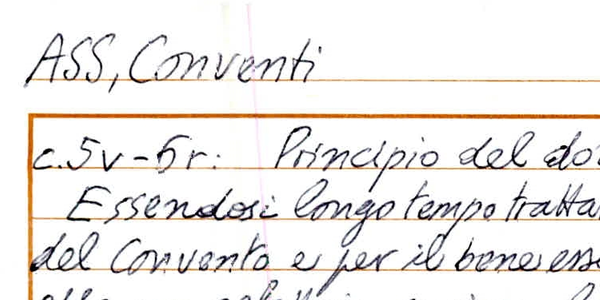 ASS, Conventi
c. 5v-6r: Principio del do
Essendosi longo tempo tratta
del Convento e per il bene ess